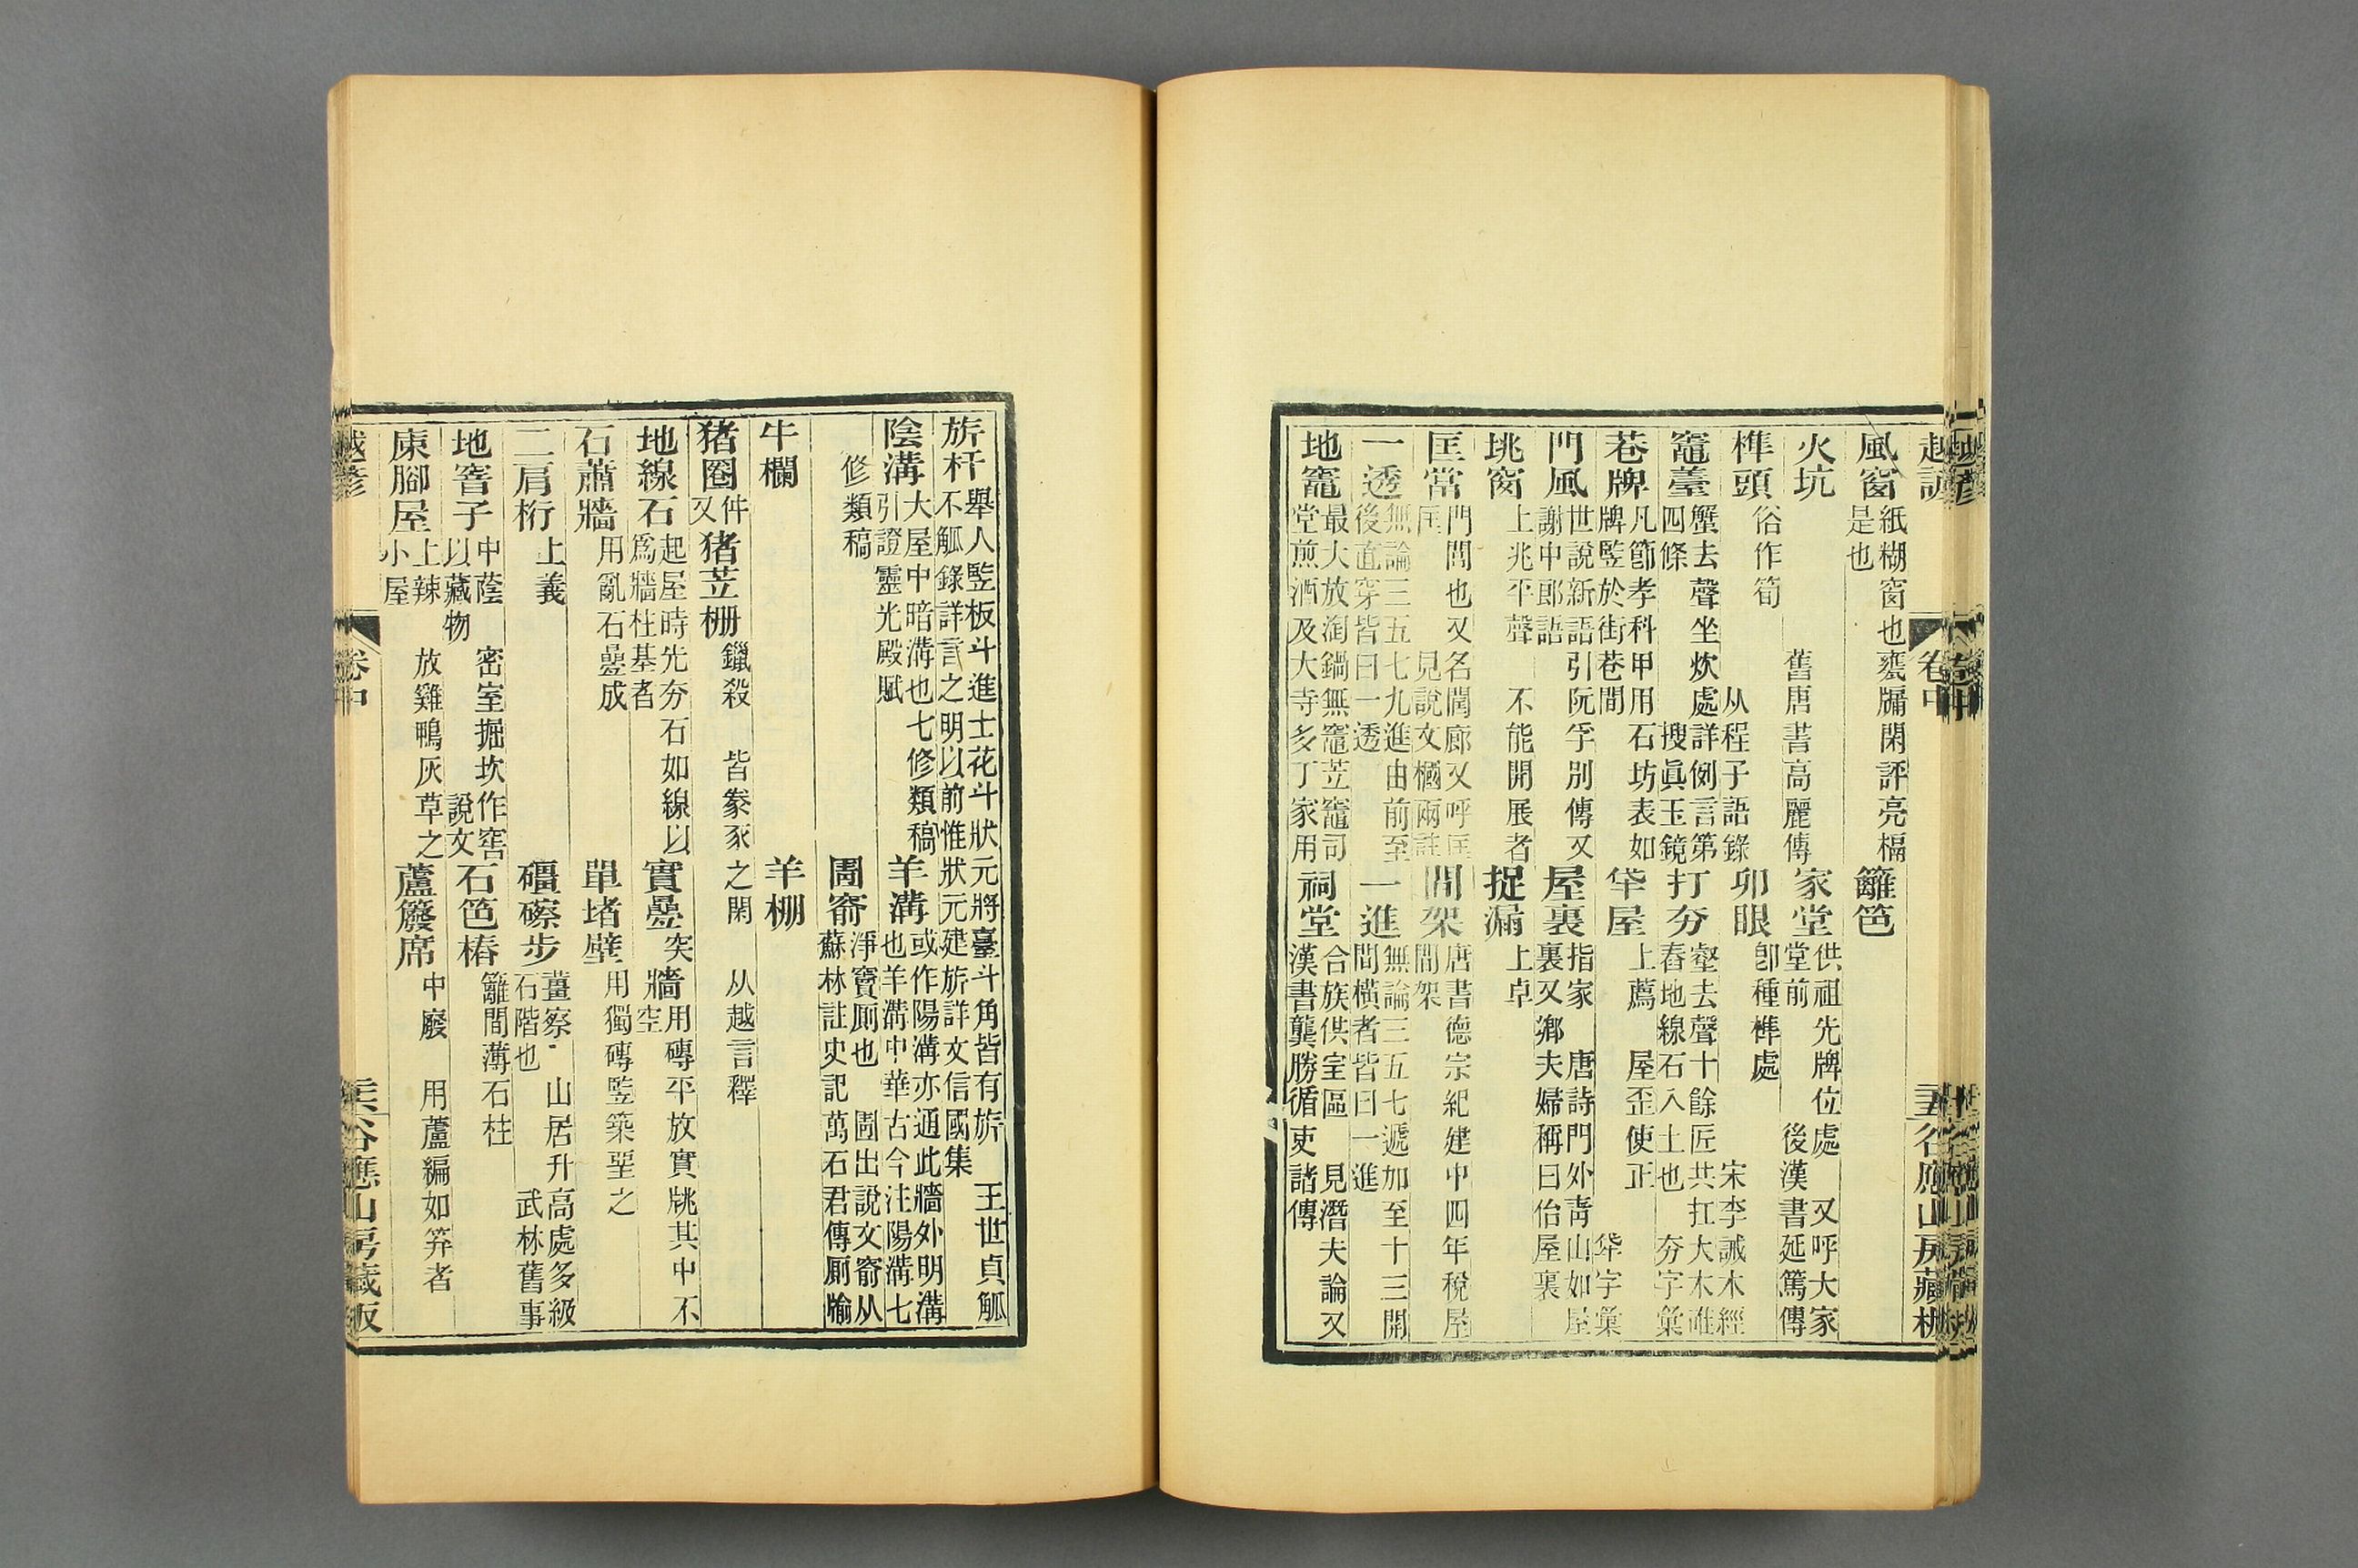 越諺 卷中 谷應山房藏板
風窗 紙糊窗也甕牖閑評亮槅是也 籬笆
火坑 舊唐書高麗傳 家堂 供祖先牌位處堂前 又呼大家後漢書延篤傳
榫頭 俗作筍 从程子語錄 卯眼 卽種榫處 宋李誡木經
竈臺 蟹去聲坐炊處詳例言第四條 搜眞玉鏡 打夯 壑去聲十餘匠共扛大木碓舂地線石入土也 夯字彙
巷牌 凡節孝科甲用石坊表如牌竪於街巷間 牮屋 上薦 屋歪使正 牮字彙
門風 世說新語引阮孚別傳又謝中郎語 屋裏 指家 唐詩門外靑山如屋裏又鄉夫婦稱曰佁屋裏
挑窗 上兆平聲 不能開展者 捉漏 上卓
匡當 門閫也又名閫廊又呼匡匡 見說文槶兩註 間架 唐書德宗紀建中四年稅屋間架
一透 無論三五七九進由前至後直穿皆曰一透 一進 無論三五七遞加至十三開間橫者皆曰一進
地竈 最大放淘鍋無竈苙竈司堂煎酒及大寺多丁家用 祠堂 合族供室區 見潛夫論又漢書龔勝循吏諸傳
旂杆 舉人監板斗進士花斗狀元將臺斗角皆有旂 王世貞觚不觚錄詳言之明以前惟狀元建旂詳文信國集
陰溝 大屋中暗溝也七修類稿引證靈光殿賦 羊溝 或作陽溝亦通此牆外明溝也羊溝中華古今注陽溝七
修類稿 圊窬 淨竇廁也 圊出說文窬从蘇林註史記萬石君傳廁牏
牛欄 羊棚
猪圈 又件 猪苙棚 鑞殺 皆豢豕之閑 从越言釋
地線石 起屋時先夯石如線以爲牆柱基者 實疊 突 牆 空 用磚平放實毗其中不
石蕭牆 用亂石疊成 單堵壁 用獨磚竪築堊之
二肩桁 上義 礓磜步 薑察 山居升高處多級石階也 武林舊事
地窨子 中蔭 密室掘坎作窖以藏物 說文 石笆樁 籬間薄石柱
庲腳屋 上辣 放雞鴨灰草之小屋 蘆簾席 中廢 用蘆編如笲者
越諺 卷中 谷應山房藏板